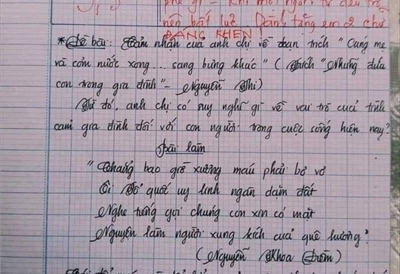 nên bất lực
ĐÁNG KHEN
* Đề bài: Cảm nhận của anh chị về đoạn trích "Cúng mẹ
và cơm nước xong... sang bừng khác" (trích "Những đứa
con trong gia đình" - Nguyễn Thi)
Từ đó, anh chị có suy nghĩ gì về vai trò của tình
cảm gia đình đối với con người trong cuộc sống hiện nay?
Bài làm
"Chẳng bao giờ xương máu phải bơ vơ
Ôi Tổ quốc uy linh ngàn dặm đất
Nghe tiếng gọi chúng con xin có mặt
Nguyện làm người xung kích của quê hương"
(Nguyễn Khoa Điềm)